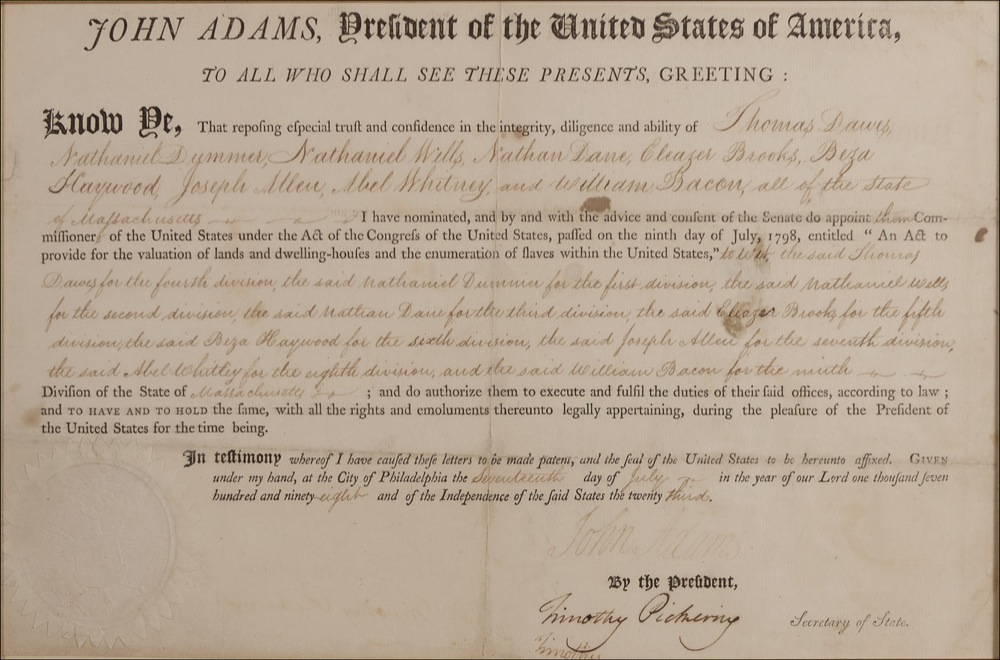 JOHN ADAMS, Preſident of the United States of America,
TO ALL WHO SHALL SEE THESE PRESENTS, GREETING :
Know Ye, That repoſing eſpecial truſt and confidence in the integrity, diligence and ability of Thomas Dawes,
Nathaniel Dymmer, Nathaniel Wells, Nathan Dane, Eleazer Brooks, Beza
Haywood, Joseph Allen, Abel Whitney, and William Bacon, all of the State
of Massachusetts I have nominated, and by and with the advice and conſent of the Senate do appoint them Com-
miſſioners of the United States under the Act of the Congreſs of the United States, paſſed on the ninth day of July, 1798, entitled “ An Act to
provide for the valuation of lands and dwelling-houſes and the enumeration of ſlaves within the United States,” to wit, the said Thomas
Dawes for the fourth division, the said Nathaniel Dummer for the first division, the said Nathaniel Wells
for the second division, the said Nathan Dane for the third division, the said Eleazer Brooks for the fifth
division, the said Beza Haywood for the sixth division, the said Joseph Allen for the seventh division,
the said Abel Whitley for the eighth division, and the said William Bacon for the ninth
Diviſion of the State of Massachusetts ; and do authorize them to execute and fulfil the duties of their ſaid offices, according to law ;
and TO HAVE AND TO HOLD the ſame, with all the rights and emoluments thereunto legally appertaining, during the pleaſure of the Preſident of
the United States for the time being.
In teſtimony whereof I have cauſed theſe letters to be made patent, and the ſeal of the United States to be hereunto affixed. GIVEN
under my hand, at the City of Philadelphia the Seventeenth day of July in the year of our Lord one thouſand ſeven
hundred and ninety-eight and of the Independence of the ſaid States the twenty third.
John Adams
By the Preſident,
Timothy Pickering Secretary of State.
Timothy